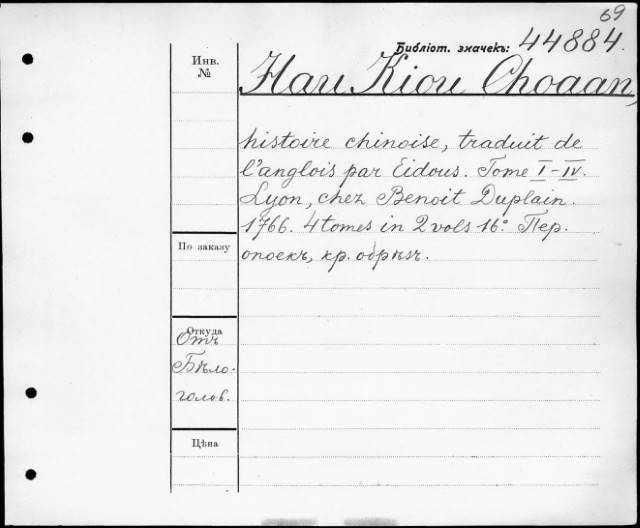 69
Библіот. значекъ: 44884.
Инв.
№
Hau Kiou Choaan,
histoire chinoise, traduit de
l'anglois par Eidous. Tome I-IV.
Lyon, chez Benoit Duplain.
1766. 4 tomes in 2 vols 16°. Пер.
опоекъ, кр. обрѣзъ.
По заказу
Откуда
Отъ
Бѣло-
голов.
Цѣна